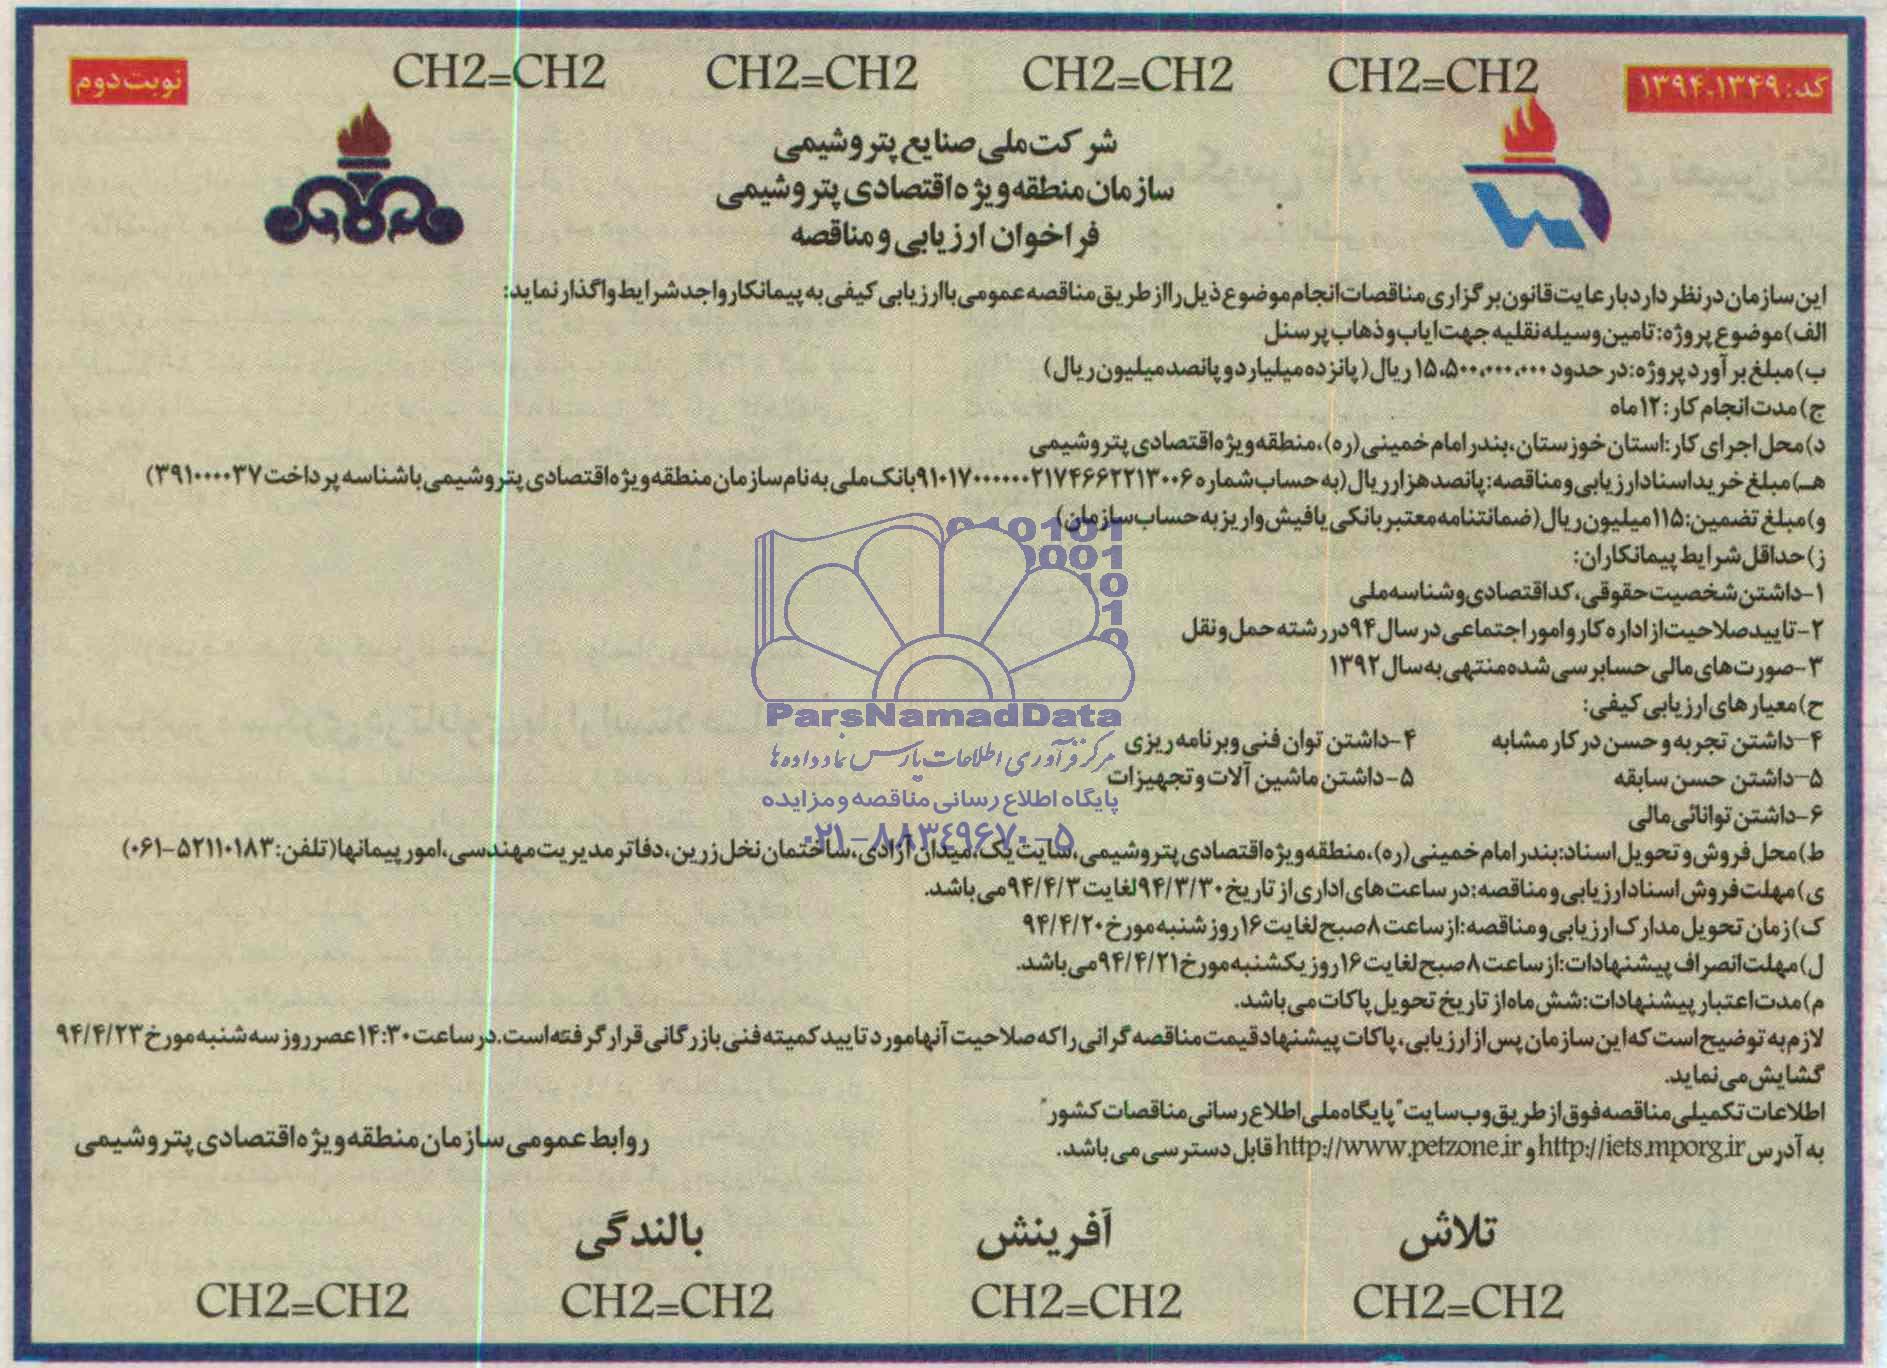 CH2=CH2 CH2=CH2 CH2=CH2 CH2=CH2
کد: ۱۳۹۴.۱۳۴۹
نوبت دوم
شرکت ملی صنایع پتروشیمی
سازمان منطقه ویژه اقتصادی پتروشیمی
فراخوان ارزیابی و مناقصه
این سازمان در نظر دارد با رعایت قانون برگزاری مناقصات انجام موضوع ذیل را از طریق مناقصه عمومی با ارزیابی کیفی به پیمانکار واجد شرایط واگذار نماید:
الف) موضوع پروژه: تامین وسیله نقلیه جهت ایاب و ذهاب پرسنل
ب) مبلغ برآورد پروژه: در حدود ۱۵،۵۰۰،۰۰۰،۰۰۰ ریال (پانزده میلیارد و پانصد میلیون ریال)
ج) مدت انجام کار: ۱۲ ماه
د) محل اجرای کار: استان خوزستان، بندر امام خمینی (ره)، منطقه ویژه اقتصادی پتروشیمی
هـ) مبلغ خرید اسناد ارزیابی و مناقصه: پانصد هزار ریال (به حساب شماره بانک ملی به نام سازمان منطقه ویژه اقتصادی پتروشیمی با شناسه پرداخت ۳۹۱۰۰۰۰۳۷)
و) مبلغ تضمین: ۱۱۵ میلیون ریال (ضمانتنامه معتبر بانکی یا فیش واریز به حساب سازمان)
ز) حداقل شرایط پیمانکاران:
۱-داشتن شخصیت حقوقی، کد اقتصادی و شناسه ملی
۲-تایید صلاحیت از اداره کار و امور اجتماعی در سال ۹۴ در رشته حمل و نقل
۳-صورت های مالی حسابرسی شده منتهی به سال ۱۳۹۲
ح) معیارهای ارزیابی کیفی:
۴-داشتن تجربه و حسن در کار مشابه ۴-داشتن توان فنی و برنامه ریزی
۵-داشتن حسن سابقه ۵-داشتن ماشین آلات و تجهیزات
۶-داشتن توانائی مالی
ط) محل فروش و تحویل اسناد: بندر امام خمینی (ره)، منطقه ویژه اقتصادی پتروشیمی، سایت یک، میدان آزادی، ساختمان نخل زرین، دفاتر مدیریت مهندسی، امور پیمانها (تلفن: ۵۲۱۱۰۱۸۳-۰۶۱)
ی) مهلت فروش اسناد ارزیابی و مناقصه: در ساعت های اداری از تاریخ ۹۴/۳/۳۰ لغایت ۹۴/۴/۳ می باشد.
ک) زمان تحویل مدارک ارزیابی و مناقصه: از ساعت ۸ صبح لغایت ۱۶ روز شنبه مورخ ۹۴/۴/۲۰
ل) مهلت انصراف پیشنهادات: از ساعت ۸ صبح لغایت ۱۶ روز یکشنبه مورخ ۹۴/۴/۲۱ می باشد.
م) مدت اعتبار پیشنهادات: شش ماه از تاریخ تحویل پاکات می باشد.
لازم به توضیح است که این سازمان پس از ارزیابی، پاکات پیشنهاد قیمت مناقصه گرانی را که صلاحیت آنها مورد تایید کمیته فنی بازرگانی قرار گرفته است. در ساعت ۱۴:۳۰ عصر روز سه شنبه مورخ ۹۴/۴/۲۳
گشایش می نماید.
اطلاعات تکمیلی مناقصه فوق از طریق وب سایت "پایگاه ملی اطلاع رسانی مناقصات کشور"
به آدرس http://iets.mporg.ir و http://www.petzone.ir قابل دسترسی می باشد.
روابط عمومی سازمان منطقه ویژه اقتصادی پتروشیمی
تلاش آفرینش بالندگی
CH2=CH2 CH2=CH2 CH2=CH2 CH2=CH2
ParsNamadData
مرکز فرآوری اطلاعات پارس نماد داده ها
پایگاه اطلاع رسانی مناقصه و مزایده
۰۲۱-۸۸۳۴۹۶۷۰-۵